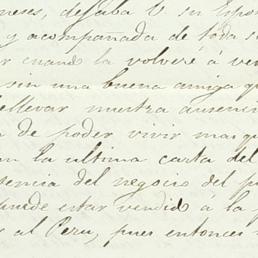 meses, dejaba V su Espos
y acompañada de toda s
r cuando la volveré á ve
sin una buena amiga qu
ellevar nuestra ausenci
de poder vivir mas qu
an la ultima carta del
sencia del negocio del p
puede estar vendido á la
r al Peru, pues entonces